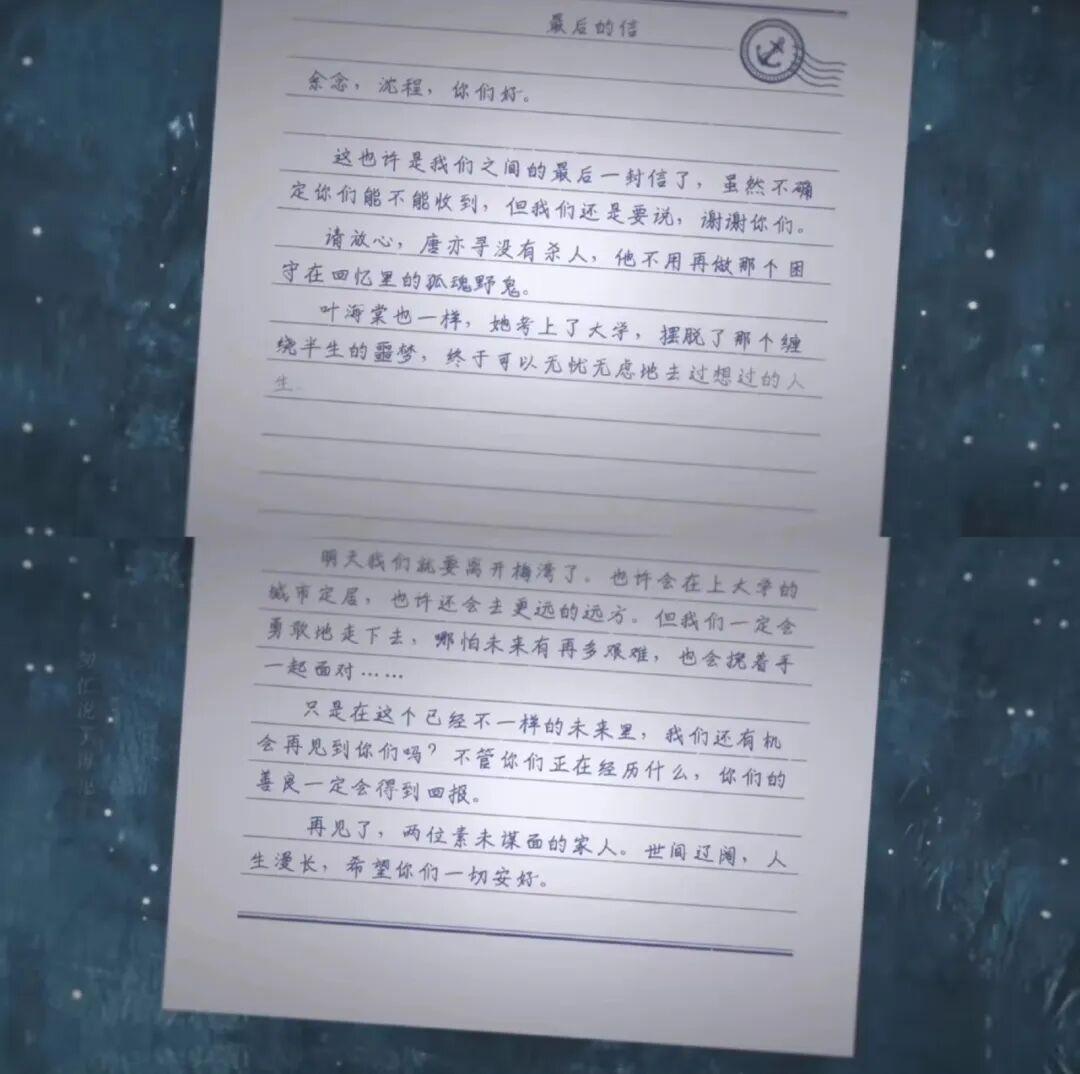 最后的信
余念，沈程，你们好。
这也许是我们之间的最后一封信了，虽然不确
定你们能不能收到，但我们还是要说，谢谢你们。
请放心，唐亦寻没有杀人，他不用再做那个困
守在回忆里的孤魂野鬼。
叶海棠也一样，她考上了大学，摆脱了那个缠
绕半生的噩梦，终于可以无忧无虑地去过想过的人
生
明天我们就要离开梅湾了。也许会在上大学的
城市定居，也许还会去更远的远方。但我们一定会
勇敢地走下去，哪怕未来有再多艰难，也会挽着手
一起面对……
只是在这个已经不一样的未来里，我们还有机
会再见到你们吗？不管你们正在经历什么，你们的
善良一定会得到回报。
再见了，两位素未谋面的家人。世间辽阔，人
生漫长，希望你们一切安好。